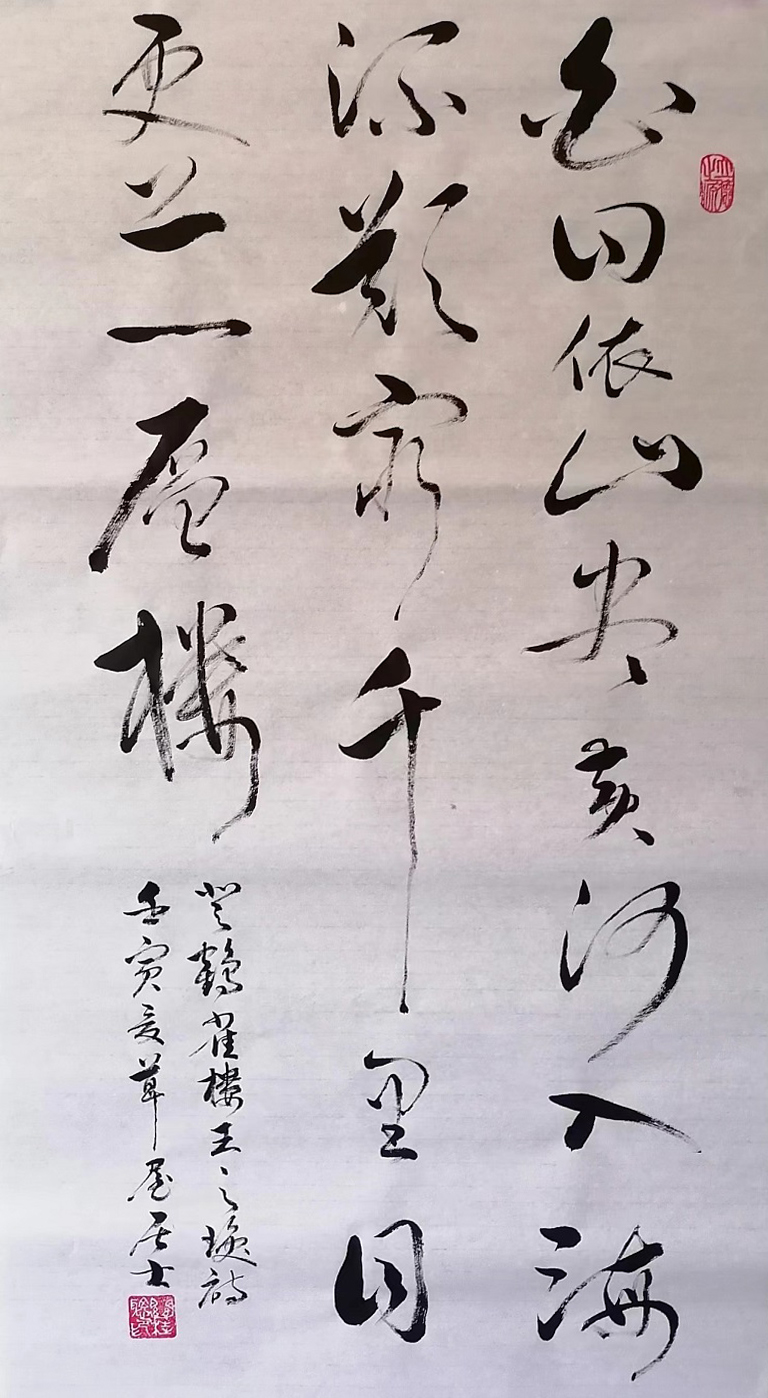 白日依山尽黄河入海
流欲窮千里目
更上一層樓
登鶴雀樓王之渙詩
壬寅夏草屋居士